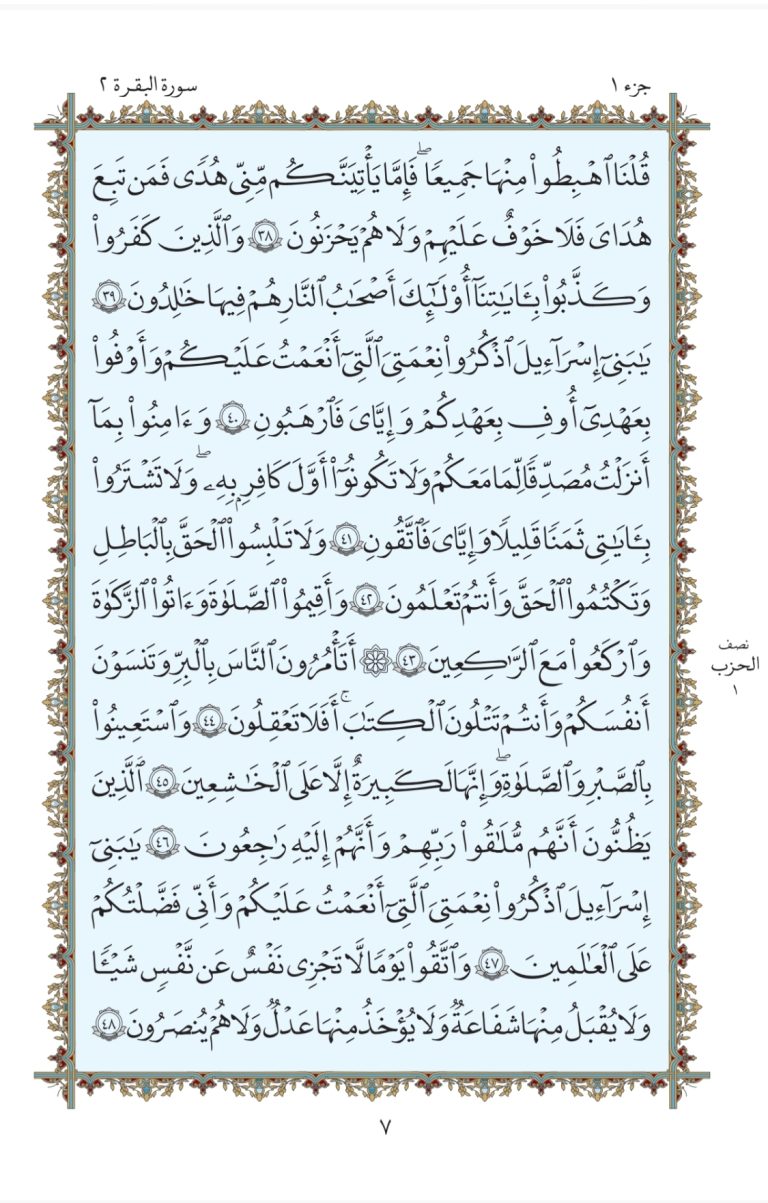 جزء ١
سورة البقرة ٢
قُلْنَا ٱهْبِطُوا۟ مِنْهَا جَمِيعًا ۖ فَإِمَّا يَأْتِيَنَّكُم مِّنِّى هُدًى فَمَن تَبِعَ
هُدَاىَ فَلَا خَوْفٌ عَلَيْهِمْ وَلَا هُمْ يَحْزَنُونَ ٣٨ وَٱلَّذِينَ كَفَرُوا۟
وَكَذَّبُوا۟ بِـَٔايَـٰتِنَآ أُو۟لَـٰٓئِكَ أَصْحَـٰبُ ٱلنَّارِ هُمْ فِيهَا خَـٰلِدُونَ ٣٩
يَـٰبَنِىٓ إِسْرَآءِيلَ ٱذْكُرُوا۟ نِعْمَتِىَ ٱلَّتِىٓ أَنْعَمْتُ عَلَيْكُمْ وَأَوْفُوا۟
بِعَهْدِىٓ أُوفِ بِعَهْدِكُمْ وَإِيَّـٰىَ فَٱرْهَبُونِ ٤٠ وَءَامِنُوا۟ بِمَآ
أَنزَلْتُ مُصَدِّقًا لِّمَا مَعَكُمْ وَلَا تَكُونُوٓا۟ أَوَّلَ كَافِرٍۭ بِهِۦ ۖ وَلَا تَشْتَرُوا۟
بِـَٔايَـٰتِى ثَمَنًا قَلِيلًا وَإِيَّـٰىَ فَٱتَّقُونِ ٤١ وَلَا تَلْبِسُوا۟ ٱلْحَقَّ بِٱلْبَـٰطِلِ
وَتَكْتُمُوا۟ ٱلْحَقَّ وَأَنتُمْ تَعْلَمُونَ ٤٢ وَأَقِيمُوا۟ ٱلصَّلَوٰةَ وَءَاتُوا۟ ٱلزَّكَوٰةَ
وَٱرْكَعُوا۟ مَعَ ٱلرَّٰكِعِينَ ٤٣ ۞ أَتَأْمُرُونَ ٱلنَّاسَ بِٱلْبِرِّ وَتَنسَوْنَ
نصف
الحزب
١
أَنفُسَكُمْ وَأَنتُمْ تَتْلُونَ ٱلْكِتَـٰبَ ۚ أَفَلَا تَعْقِلُونَ ٤٤ وَٱسْتَعِينُوا۟
بِٱلصَّبْرِ وَٱلصَّلَوٰةِ ۖ وَإِنَّهَا لَكَبِيرَةٌ إِلَّا عَلَى ٱلْخَـٰشِعِينَ ٤٥ ٱلَّذِينَ
يَظُنُّونَ أَنَّهُم مُّلَـٰقُوا۟ رَبِّهِمْ وَأَنَّهُمْ إِلَيْهِ رَٰجِعُونَ ٤٦ يَـٰبَنِىٓ
إِسْرَآءِيلَ ٱذْكُرُوا۟ نِعْمَتِىَ ٱلَّتِىٓ أَنْعَمْتُ عَلَيْكُمْ وَأَنِّى فَضَّلْتُكُمْ
عَلَى ٱلْعَـٰلَمِينَ ٤٧ وَٱتَّقُوا۟ يَوْمًا لَّا تَجْزِى نَفْسٌ عَن نَّفْسٍ شَيْـًٔا
وَلَا يُقْبَلُ مِنْهَا شَفَـٰعَةٌ وَلَا يُؤْخَذُ مِنْهَا عَدْلٌ وَلَا هُمْ يُنصَرُونَ ٤٨
٧